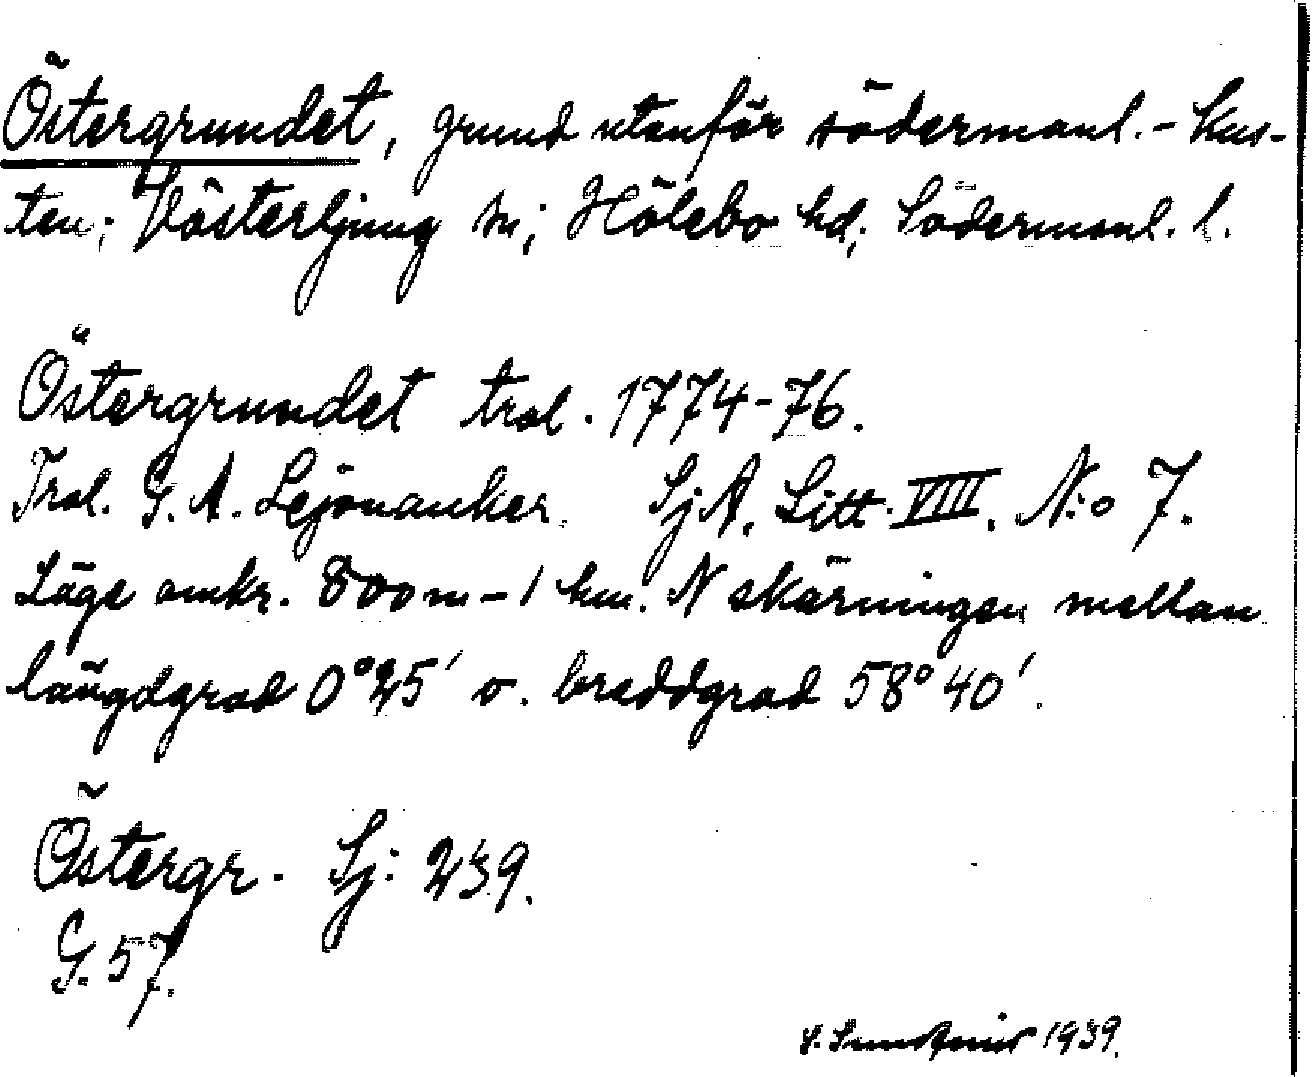 Östergrundet, grund utanför södermanl.-kus-
ten; Västerljung sn; Hölebo hd; Södermanl. l.
Östergrundet trol. 1774-76.
Trol. G. A. Lejonanker. SjA. Litt. VIII. N:o 7.
Läge omkr. 800 m - 1 km. N skärningen mellan
längdgrad 0°25' o. breddgrad 58°40'.
Östergr. Sj: 239.
G. 57.
1939.